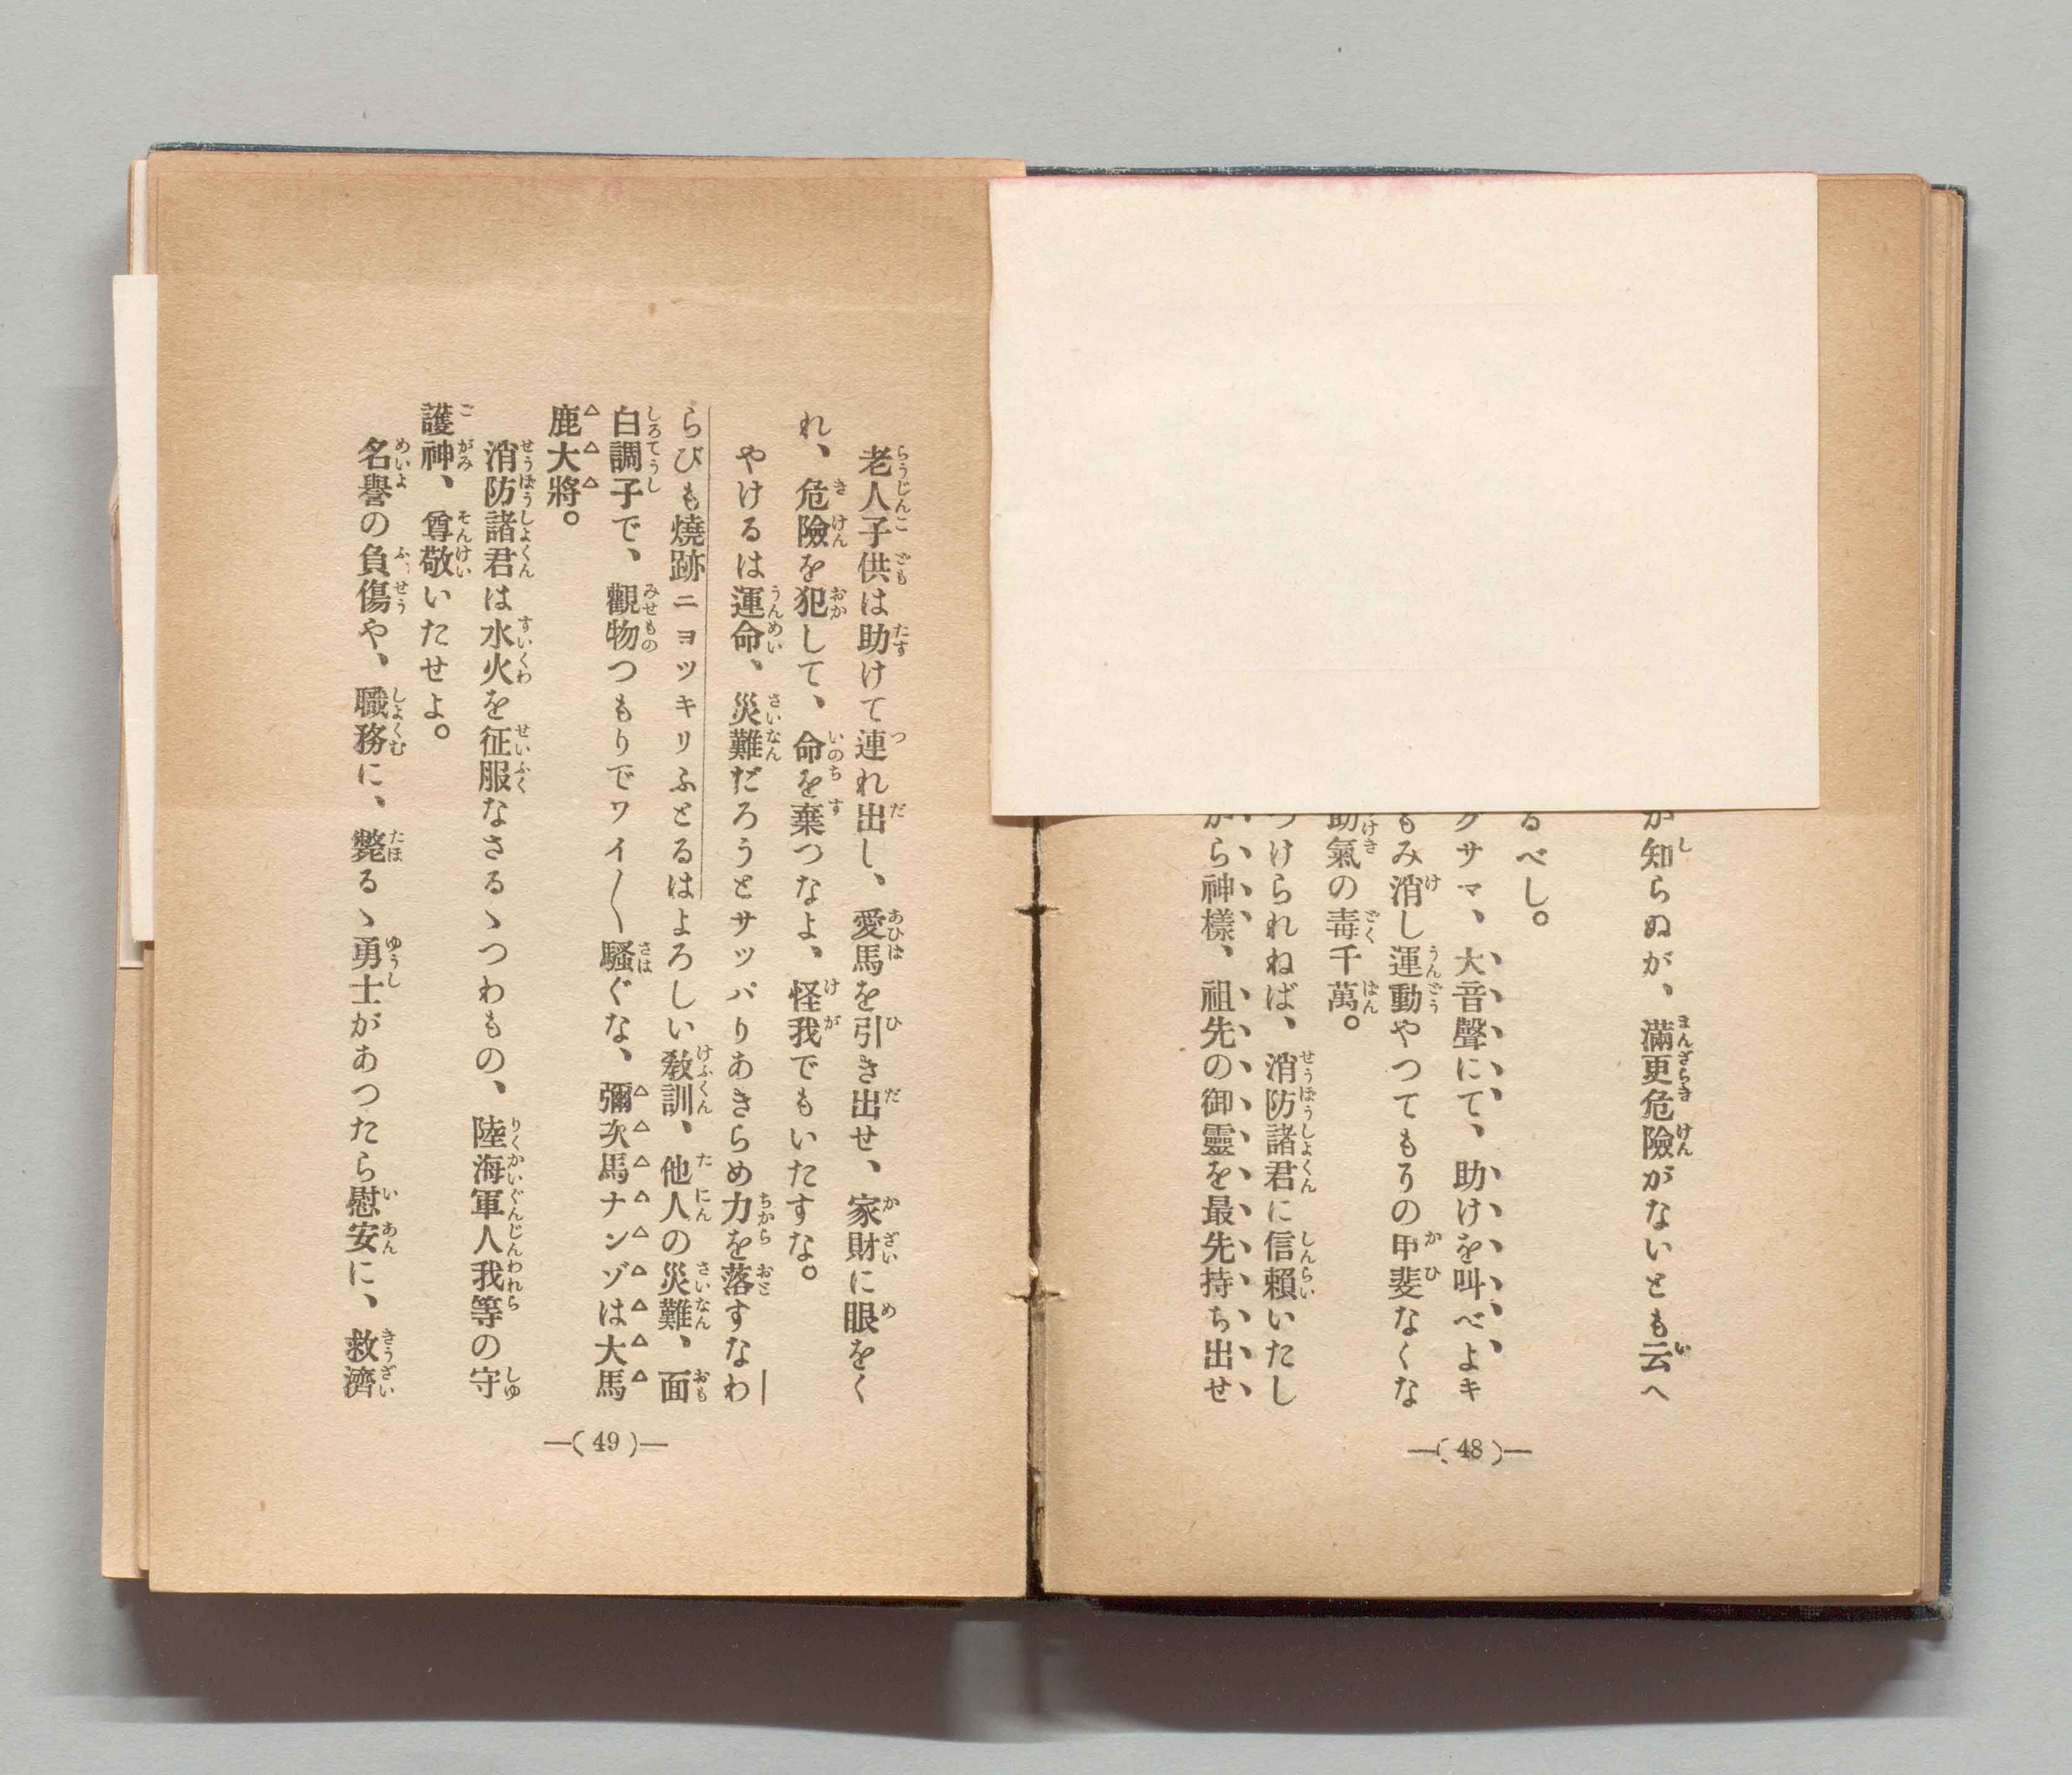 知らぬが、滿更危險がないとも云へ
べし。
サマ、大音聲にて、助けを叫べよキ
もみ消し運動やつてもりの甲斐なくな
助氣の毒千萬。
つけられねば、消防諸君に信賴いたし
から神樣、祖先の御靈を最先持ち出せ
—( 48 )—
老人子供は助けて連れ出し、愛馬を引き出せ、家財に眼をく
れ、危險を犯して、命を棄つなよ、怪我でもいたすな。
やけるは運命、災難だろうとサッパりあきらめ力を落すなわ
らびも燒跡ニョッキリふとるはよろしい敎訓、他人の災難、面
白調子で、觀物つもりでワイ〱騷ぐな、彌次馬ナンゾは大馬
鹿大將。
消防諸君は水火を征服なさるゝつわもの、陸海軍人我等の守
護神、尊敬いたせよ。
名譽の負傷や、職務に、斃るゝ勇士があつたら慰安に、救濟
—( 49 )—